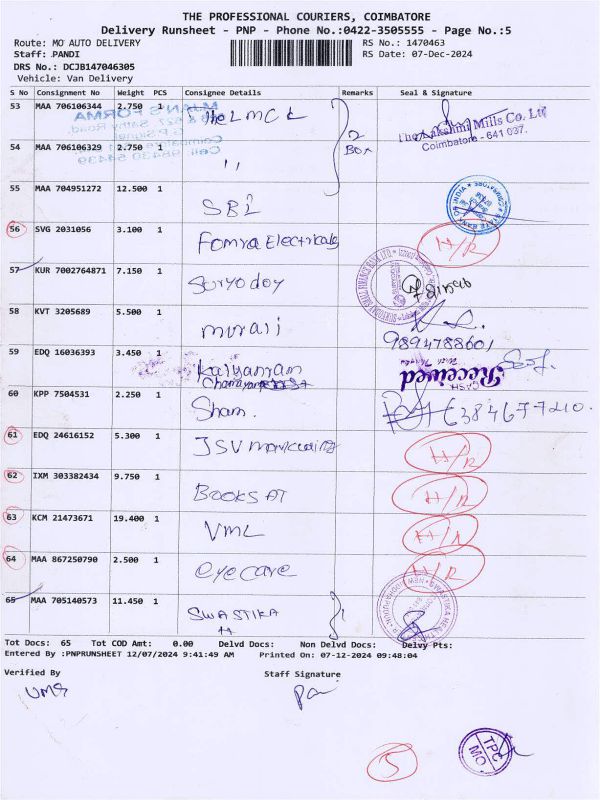 THE PROFESSIONAL COURIERS, COIMBATORE
Delivery Runsheet - PNP - Phone No.:0422-3505555 - Page No.:5
Route: MO AUTO DELIVERY RS No.: 1470463
Staff: PANDI RS Date: 07-Dec-2024
DRS No.: DCJB147046305
Vehicle: Van Delivery
S No Consignment No Weight PCS Consignee Details Remarks Seal & Signature
53 MAA 706106344 2.750 1 The LMCL 2 Box The Lakshmi Mills Co. Ltd
Coimbatore - 641 037.
54 MAA 706106329 2.750 1 ,,
55 MAA 704951272 12.500 1 SBI STATE BANK OF INDIA
56 SVG 2031056 3.100 1 Fomra Electricals H/R
57 KUR 7002764871 7.150 1 Suryoday
58 KVT 3205689 5.500 1 murali 9894788601
59 EDQ 16036393 3.450 1 Kalyanram Received
60 KPP 7504531 2.250 1 Sham. 6384677210.
61 EDQ 24616152 5.300 1 JSV H/R
62 IXM 303382434 9.750 1 BOOKS AT H/R
63 KCM 21473671 19.400 1 VML H/R
64 MAA 867250790 2.500 1 eye care H/R
65 MAA 705140573 11.450 1 SWASTIKA
Tot Docs: 65 Tot COD Amt: 0.00 Delvd Docs: Non Delvd Docs: Delvy Pts:
Entered By :PNPRUNSHEET 12/07/2024 9:41:49 AM Printed On: 07-12-2024 09:48:04
Verified By Staff Signature
UMS
TPC
MO
5